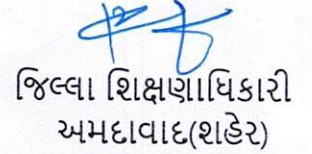 જિલ્લા શિક્ષણાધિકારી
અમદાવાદ(શહેર)